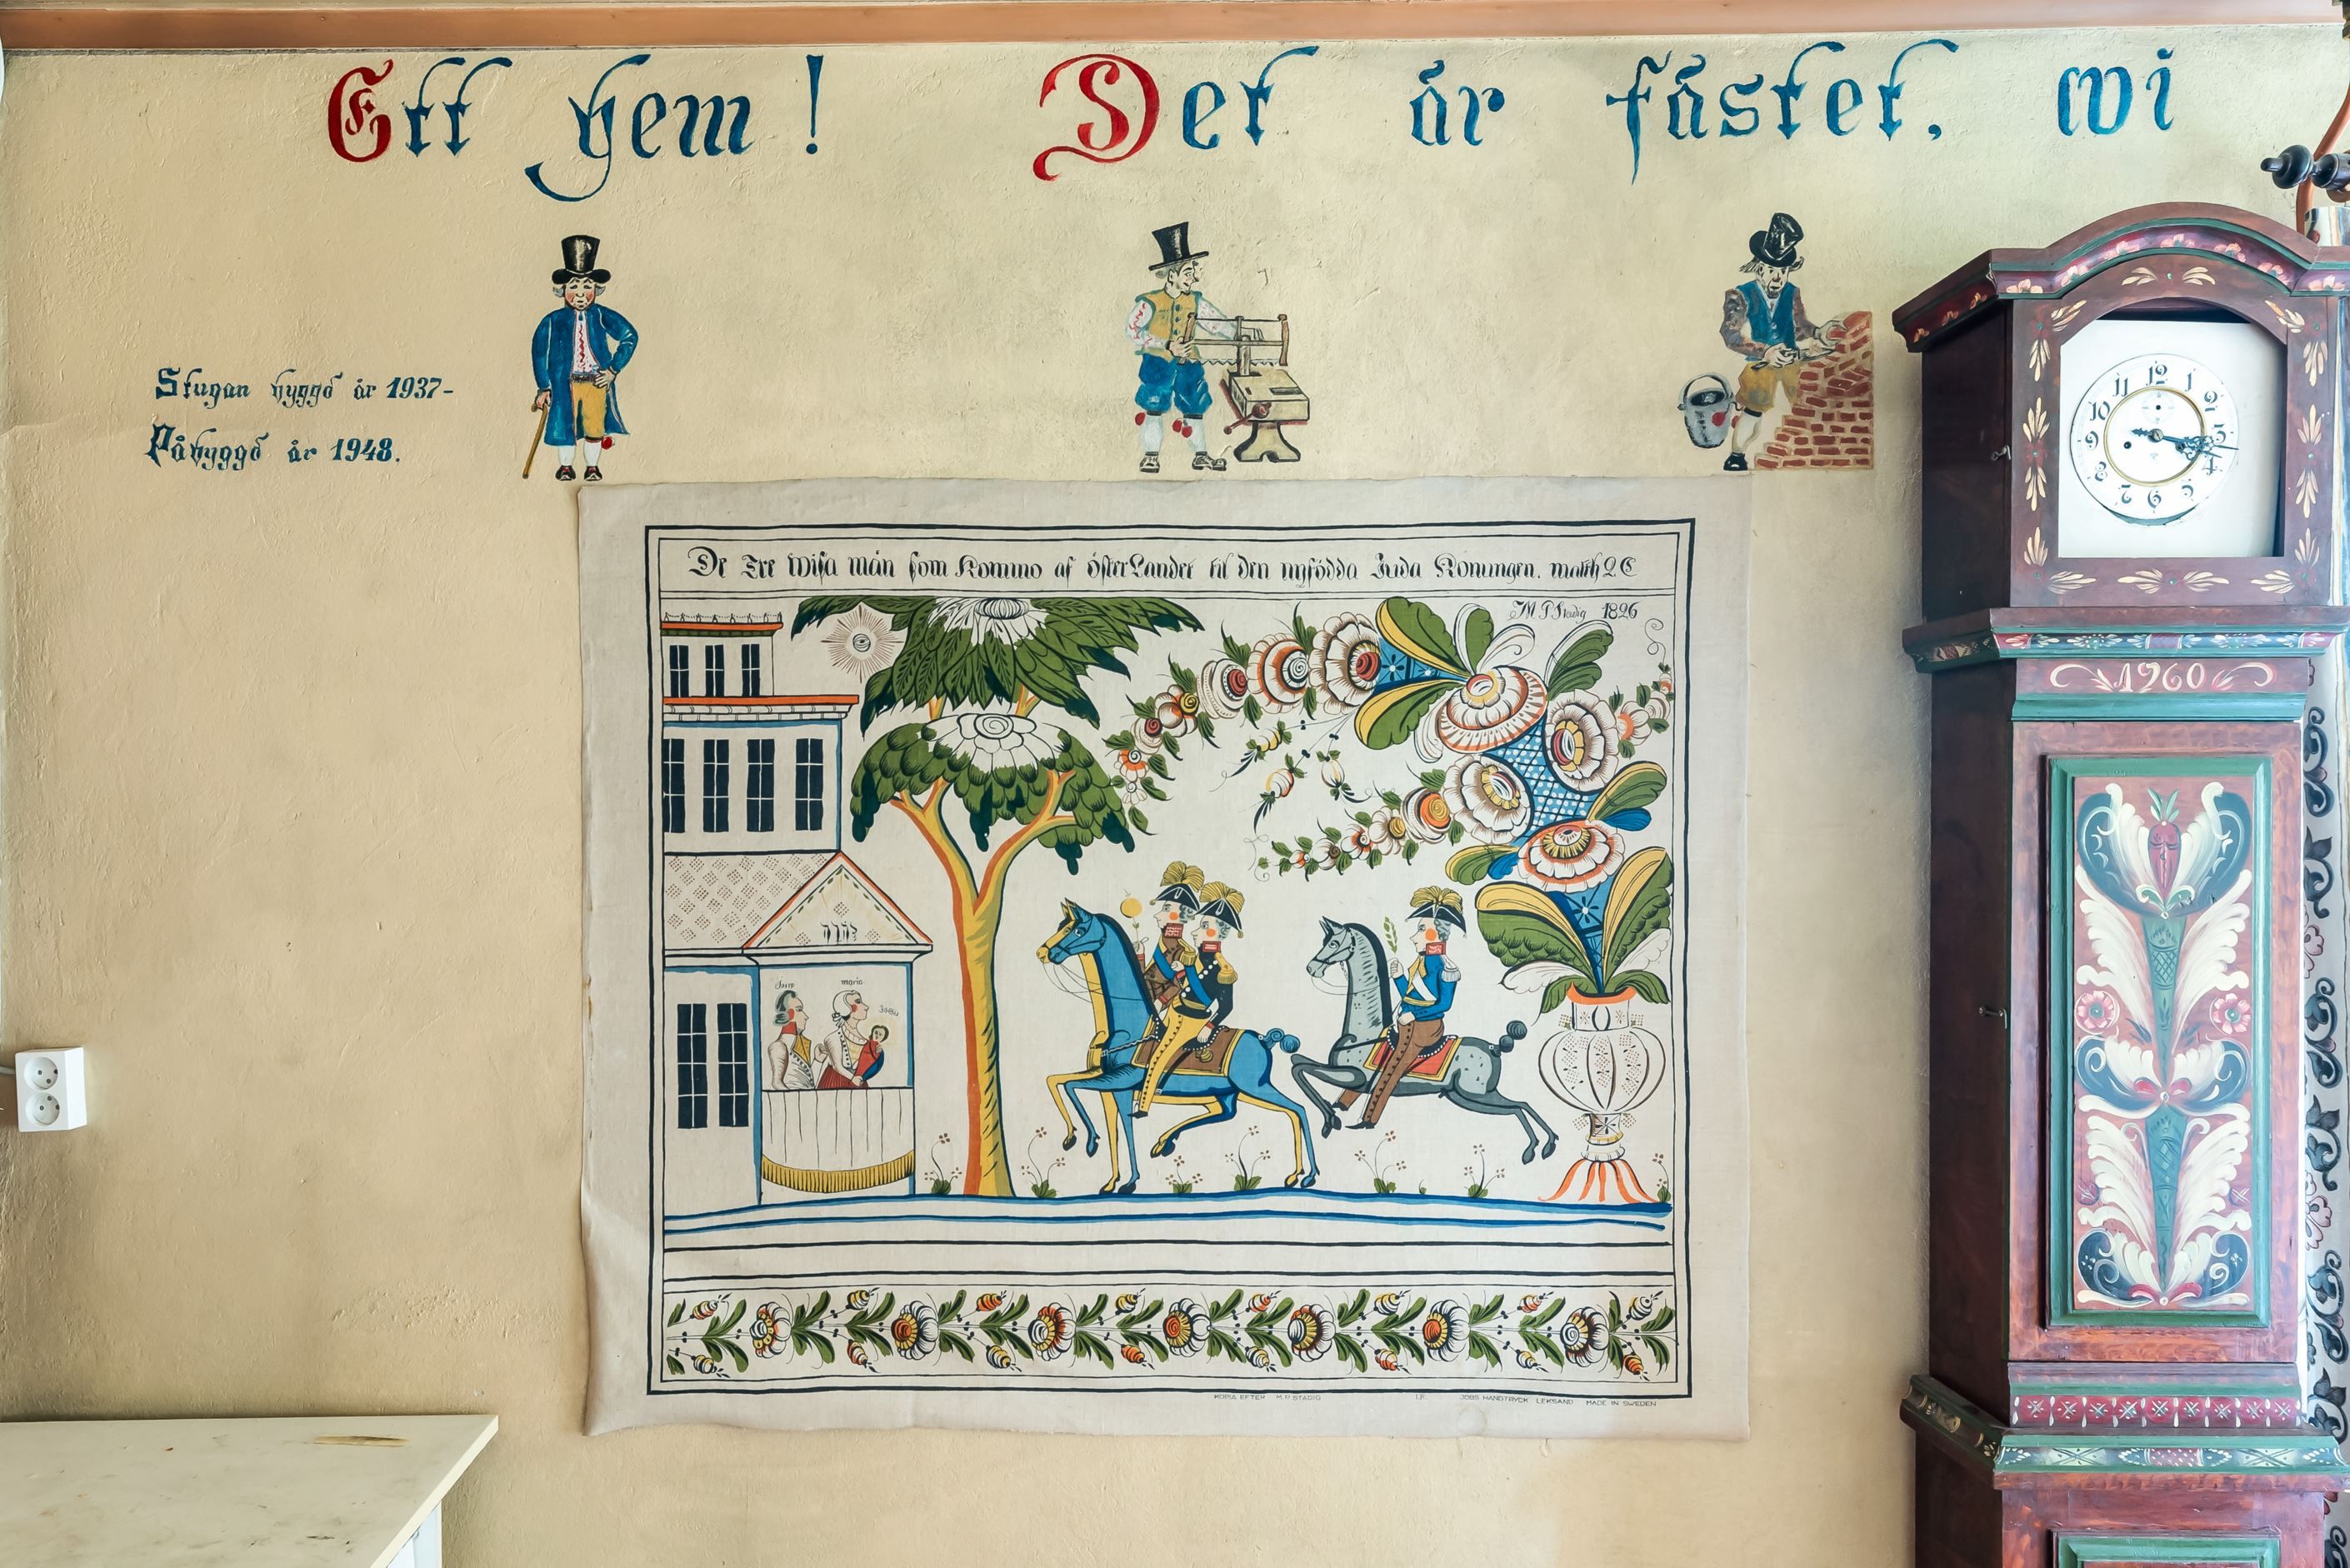 Ett hem! Det är fästet, wi
Stugan byggd år 1937-
Påbyggd år 1948.
De Tre Wisa män som Kommo af österLandet til den nyfödda Juda Konungen. math 2 C
M P Stadig 1826
יהוה
maria
12 1 2 3 5 6 7 8 9 10 11
1960
KOPIA EFTER M.P. STADIG I.F. JOBS HANDTRYCK LEKSAND MADE IN SWEDEN